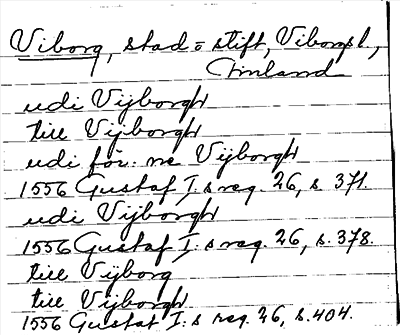 Viborg, stad o stift, Viborgsl.,
Finland
udi Vijborgh
till Vijborgh
udi för:ne Vijborgh
1556 Gustaf I:s reg. 26, s. 371.
udi Vijborgh
1556 Gustaf I:s reg. 26, s. 378.
till Vijborg
till Vijborgh
1556 Gustaf I:s reg. 26, s. 404.